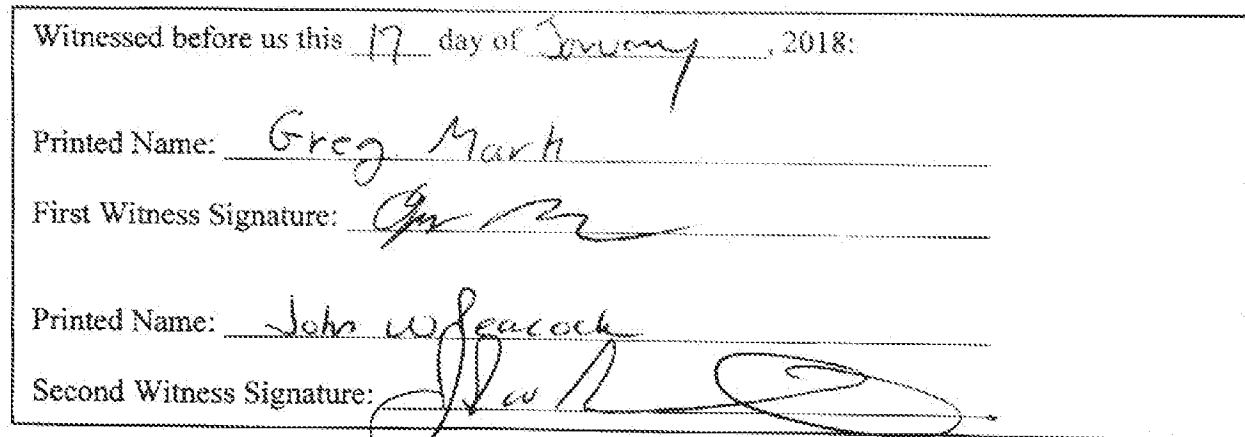 Witnessed before us this 17 day of January, 2018:
Printed Name: Greg Mark
First Witness Signature:
Printed Name: John W Peacock
Second Witness Signature: